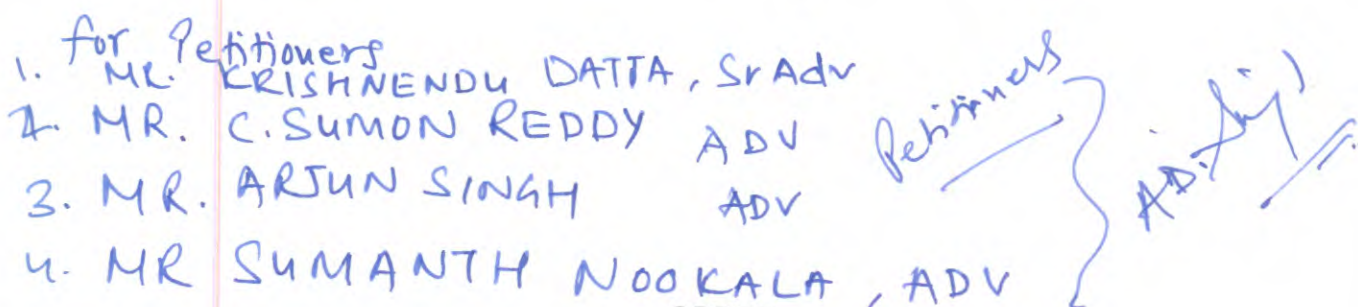 for Petitioners
1. MR. KRISHNENDU DATTA, Sr Adv
2. MR. C. SUMON REDDY ADV
3. MR. ARJUN SINGH ADV
4. MR SUMANTH NOOKALA, ADV
Petitioners